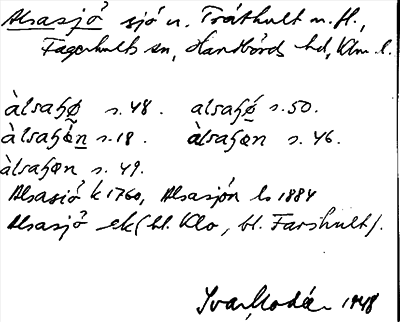 Alsasjö sjö n. Tråthult m.fl.,
Fagerhults sn, Handbörds hd, Klm. l.
àlsaɧø s. 48. alsaɧǿ s. 50.
àlsaɧø̀n s. 18. àlsaɧøn s. 46.
àlsaɧøn s. 49.
Alsasiö k 1760, Alsasjön ls 1884
Alsasjö ek (bl. Klo, bl. Farshult).
Ivar Modéer 1948